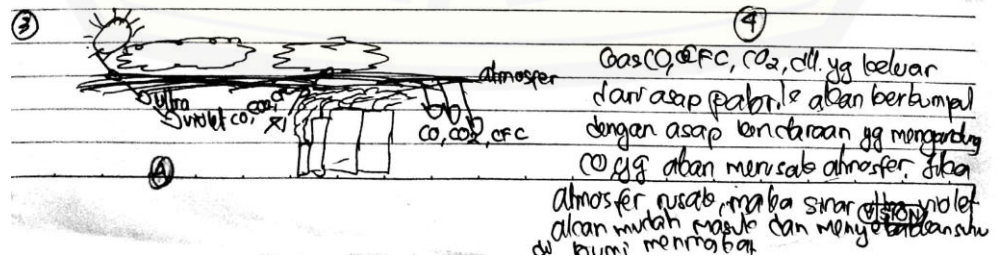 ③
atmosfer
ultra
violet CO, CO2, CFC
CO, CO2, CFC
A
④
Gas CO, CFC, CO2, dll. yg keluar
dari asap pabrik akan berkumpul
dengan asap kendaraan yg mengandung
CO yg akan merusak atmosfer. Jika
atmosfer rusak, maka sinar ultra violet
akan mudah masuk dan menyebabkan suhu
di bumi meningkat
VISION